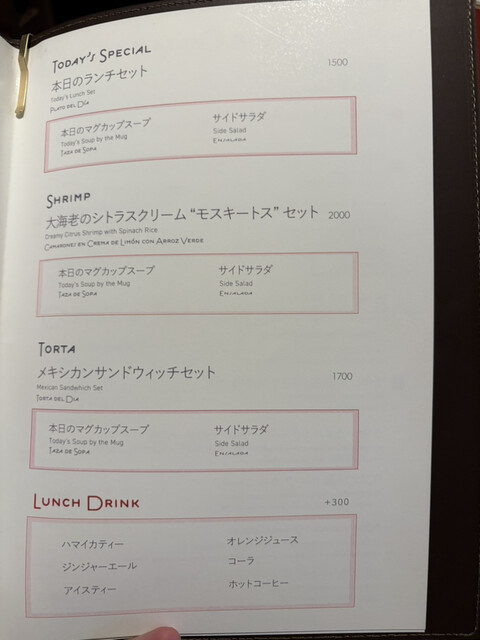 TODAY'S SPECIAL
本日のランチセット 1500
Today's Lunch Set
PLATO DEL DÍA
本日のマグカップスープ サイドサラダ
Today's Soup by the Mug Side Salad
TAZA DE SOPA ENSALADA
SHRIMP
大海老のシトラスクリーム “モスキートス” セット 2000
Creamy Citrus Shrimp with Spinach Rice
CAMARONES EN CREMA DE LIMÓN CON ARROZ VERDE
本日のマグカップスープ サイドサラダ
Today's Soup by the Mug Side Salad
TAZA DE SOPA ENSALADA
TORTA
メキシカンサンドウィッチセット 1700
Mexican Sandwhich Set
TORTA DEL DIA
本日のマグカップスープ サイドサラダ
Today's Soup by the Mug Side Salad
TAZA DE SOPA ENSALADA
LUNCH DRINK +300
ハマイカティー オレンジジュース
ジンジャーエール コーラ
アイスティー ホットコーヒー